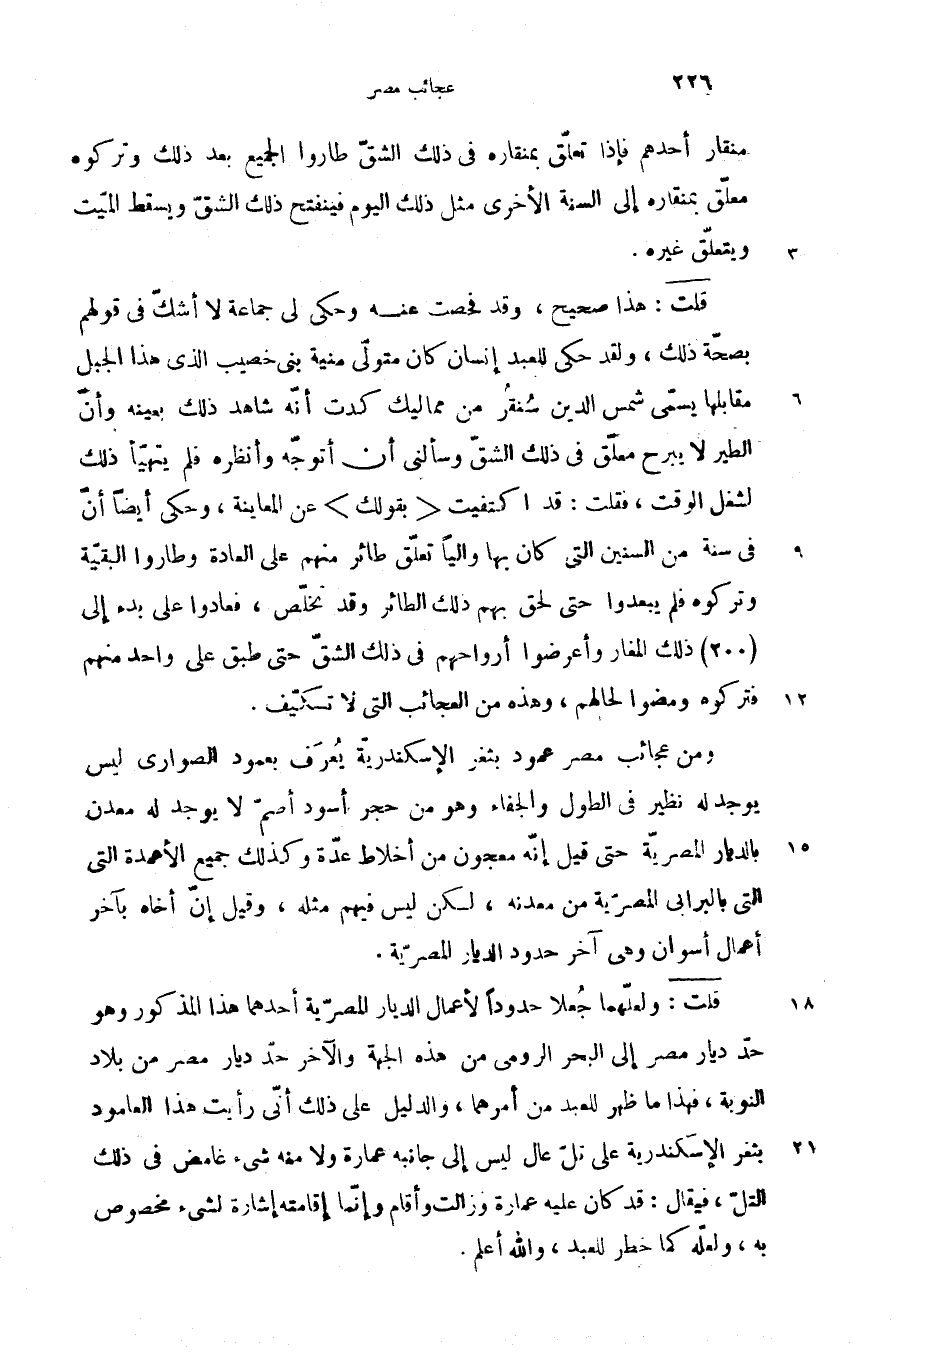 ٢٢٦ عجائب مصر
منقار أحدهم فإذا تعلّق بمنقاره فى ذلك الشقّ طاروا الجميع بعد ذلك وتركوه
معلّق بمنقاره إلى السنة الأخرى مثل ذلك اليوم فينفتح ذلك الشقّ ويسقط الميّت
٣ ويتعلّق غيره .
قلت : هذا صحيح ، وقد فحصت عنه وحكى لى جماعة لا أشكّ فى قولهم
بصحّة ذلك ، ولقد حكى للعبد إنسان كان متولّى منية بنى خصيب الذى هذا الجبل
٦ مقابلها يسمّى شمس الدين سُنقرُ من مماليك كدت أنّه شاهد ذلك بعينه وأنّ
الطير لا يبرح معلّق فى ذلك الشقّ وسألنى أن أتوجّه وأنظره فلم يتهيّأ ذلك
لشغل الوقت ، فقلت : قد اكتفيت < بقولك > عن المعاينة ، وحكى أيضاً أنّ
٩ فى سنة من السنين التى كان بها والياً تعلّق طائر منهم على العادة وطاروا البقيّة
وتركوه فلم يبعدوا حتى لحق بهم ذلك الطائر وقد تخلّص ، فعادوا على بدء إلى
(٢٠٠) ذلك المغار وأعرضوا أرواحهم فى ذلك الشقّ حتى طبق على واحد منهم
١٢ فتركوه ومضوا لحالهم ، وهذه من العجائب التى لا تتكيّف .
ومن عجائب مصر عمود بثغر الإسكندريّة يُعرَف بعمود الصوارى ليس
يوجد له نظير فى الطول والجفاء وهو من حجر أسود أصمّ لا يوجد له معدن
١٥ بالديار المصريّة حتى قيل إنّه معجون من أخلاط عدّة وكذلك جميع الأعمدة التى
التى بالبرابى المصريّة من معدنه ، لكن ليس فيهم مثله ، وقيل إنّ أخاه بآخر
أعمال أسوان وهى آخر حدود الديار المصريّة .
١٨ قلت : ولعلّهما جُعلا حدوداً لأعمال الديار المصريّة أحدهما هذا المذكور وهو
حدّ ديار مصر إلى البحر الرومى من هذه الجهة والآخر حدّ ديار مصر من بلاد
النوبة ، فهذا ما ظهر للعبد من أمرهما ، والدليل على ذلك أنّى رأيت هذا العامود
٢١ بثغر الإسكندرية على تلّ عال ليس إلى جانبه عمارة ولا منه شىء غامض فى ذلك
التلّ ، فيقال : قد كان عليه عمارة وزالت وأقام وإنّما إقامته إشارة لشىء مخصوص
به ، ولعلّه كما خطر للعبد ، والله أعلم .